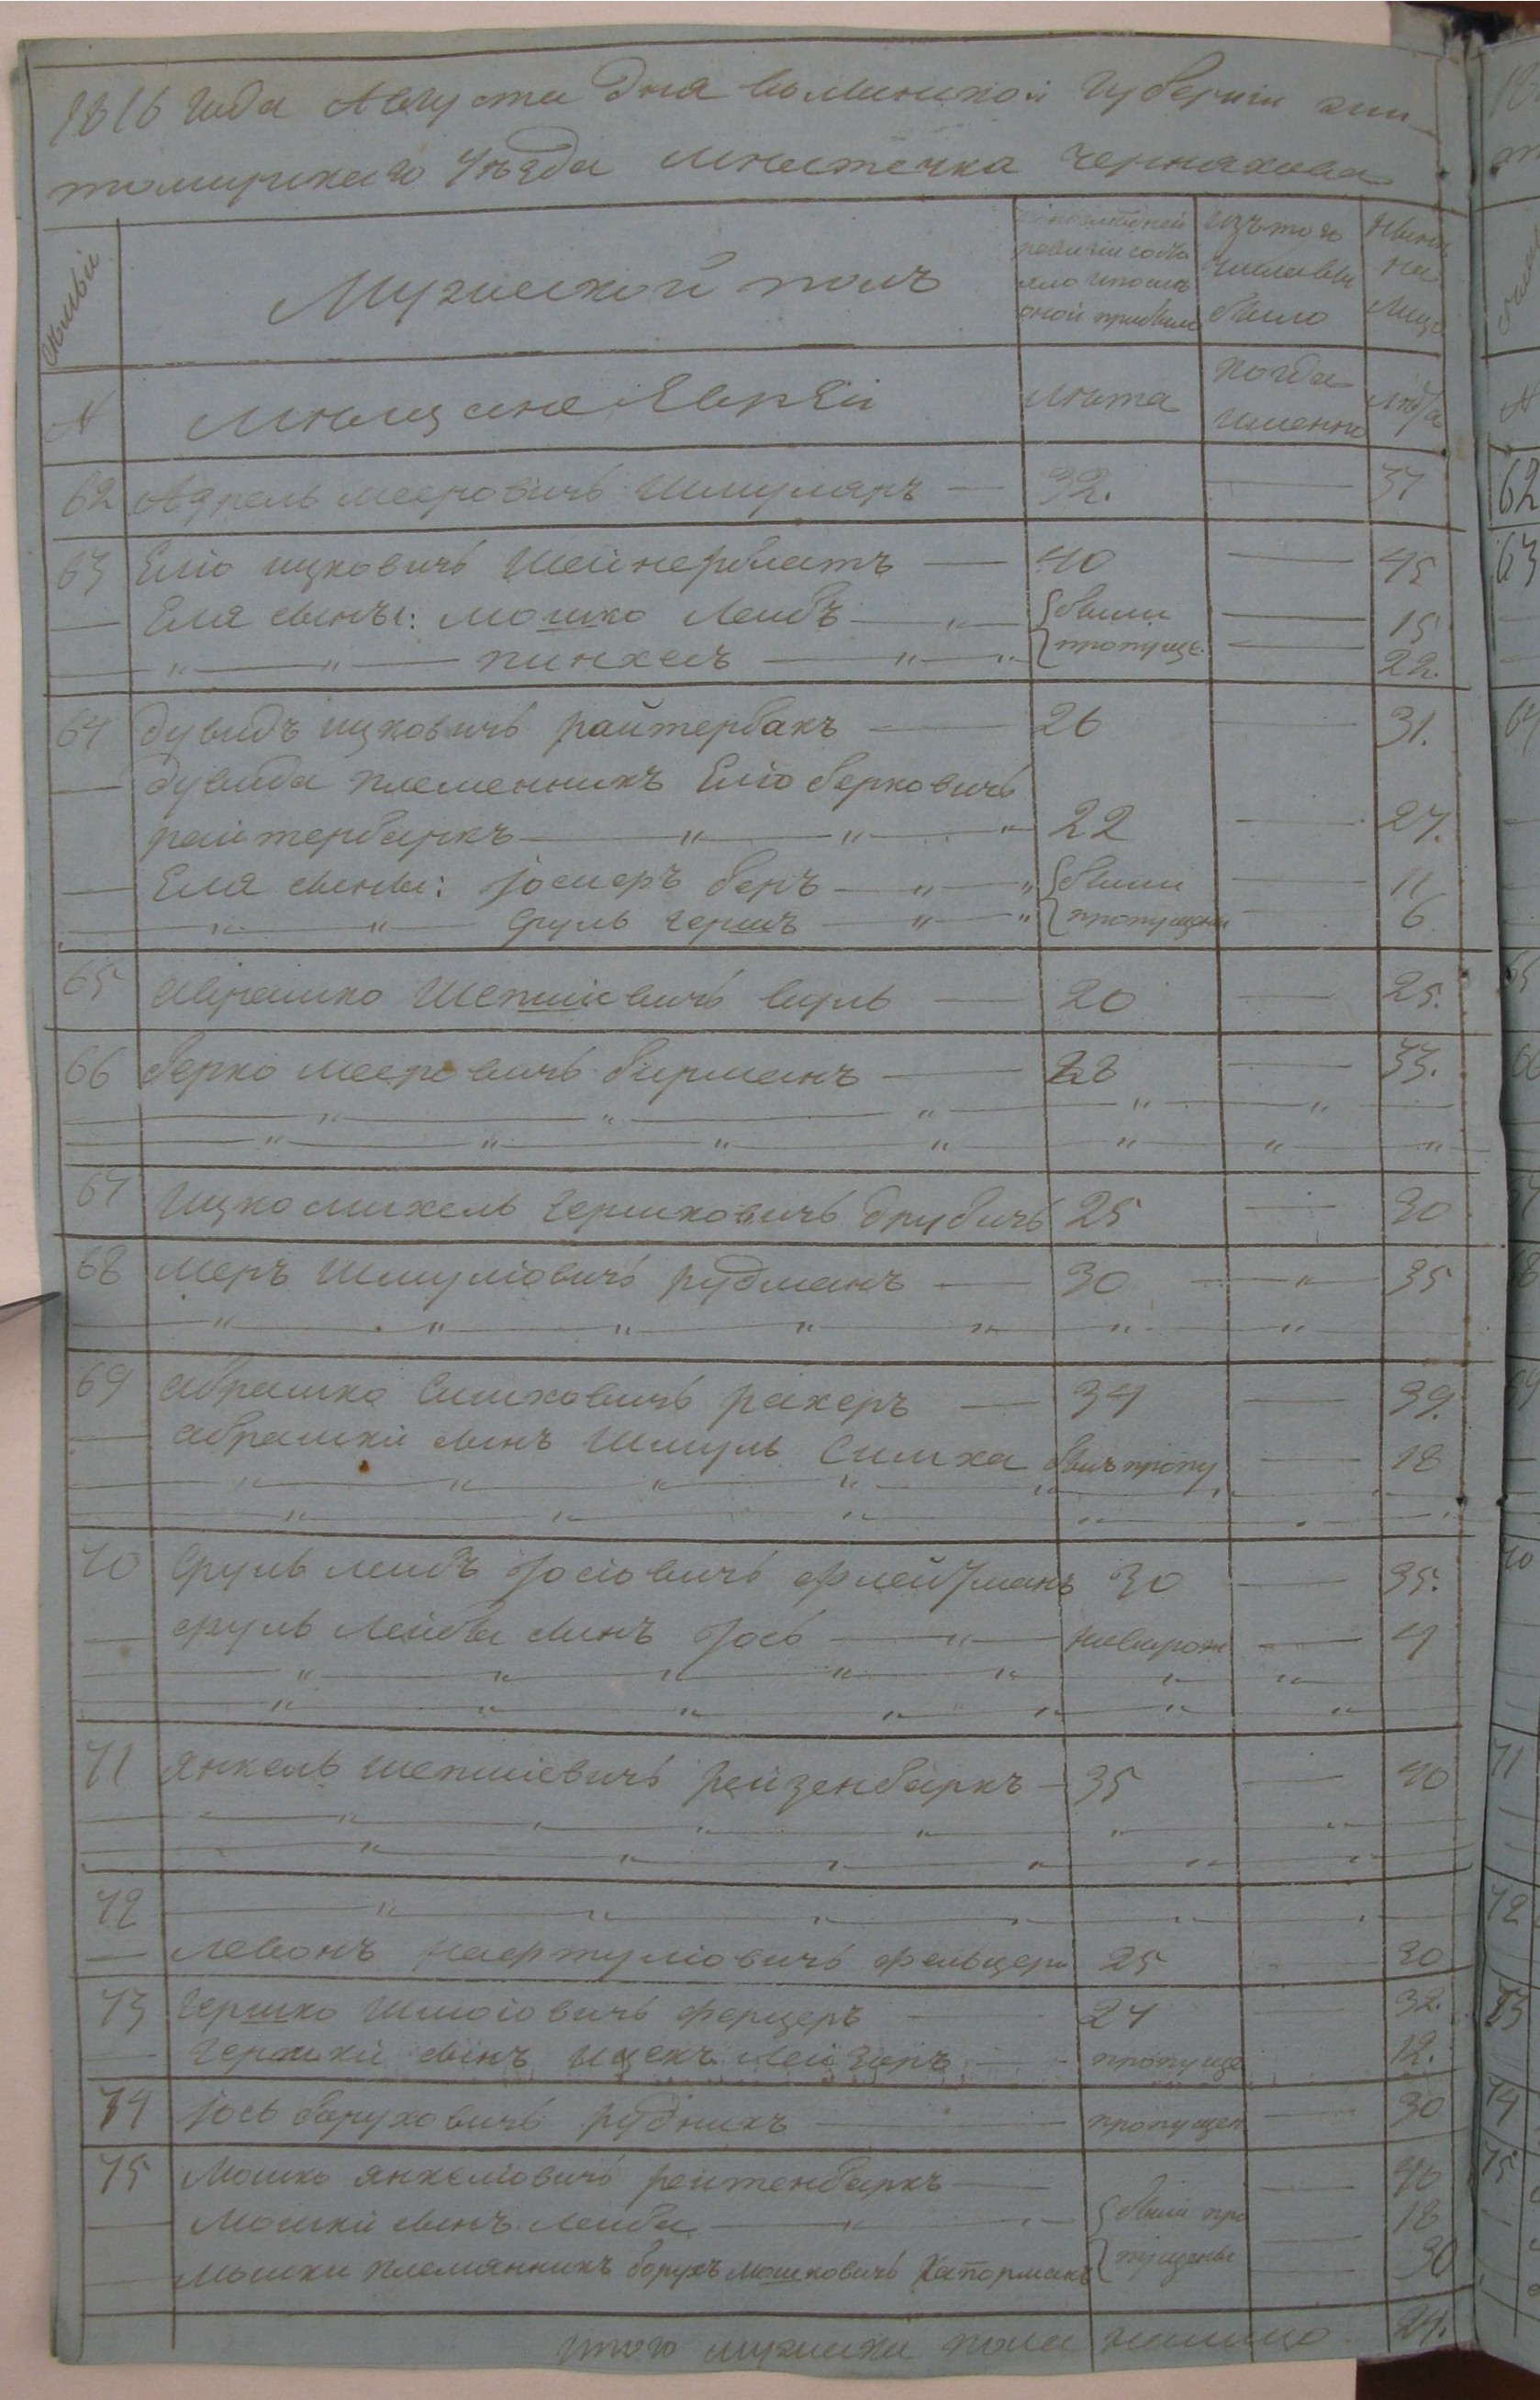 1816 года Августа дня волынской губернии жи-
томирского уѣзда мнестечка Черняхова
семьи
Мужеской полъ
по последней ревизіи состо яло и после оной прибыло
изъ того числа вы было
ныне на лицо
№ мнещане Еврѣи
лѣта
когда именно
лѣта
62 Мееровичъ Шмуляръ — 32. — 37
63 Еліо ицковичъ Шейнерблатъ — 40 — 45
— Еля сыны: мошко Лейбъ — " — были — 15
— " — " — пинхесъ — " — " пропуще — 22.
64 дувидъ ицковичъ райтербакъ — 26 — 31.
— дувида племенникъ Еліо берковичъ
рейтербаркъ — " — " — " 22 — 27.
— Еля сыны: беръ — " — " были — 11
— " — " — Сруль гершъ — " — " пропущены — 6
65 аврашко Шепшіевичъ — 20 — 25.
66 берко мееровичъ бирманъ — 28 — 33.
67 Ицко михель гершковичъ 25 — 30
68 меръ Шмуліовичъ рудманъ — 30 — " — 35
69 абрашко Симховичъ рахеръ — 34 — 39.
— абрашки сынъ Шмуль Симха былъ пропу — 18
70 Сруль лейбъ Іосіовичъ флейшманъ 30 — 35.
— сруль Лейбы сынъ Іось — " — — 4
71 янкель шепшіевичъ рейзенбаркъ — 35 — 40
72
— 25 30
73 гершко Шмоіовичъ ферцеръ — 27 — 32.
— гершки сынъ ицекъ Лейзоръ — пропуще 12.
74 Іось боруховичъ рудникъ — пропущен — 30
75 Мошко янкеліовичъ рейтенбаркъ — — 40
— мошки сынъ лейба — " — были про — 18
— мошки племянникъ борухъ мошковичъ пущены — 30
итого мужеска пола налицо 24.